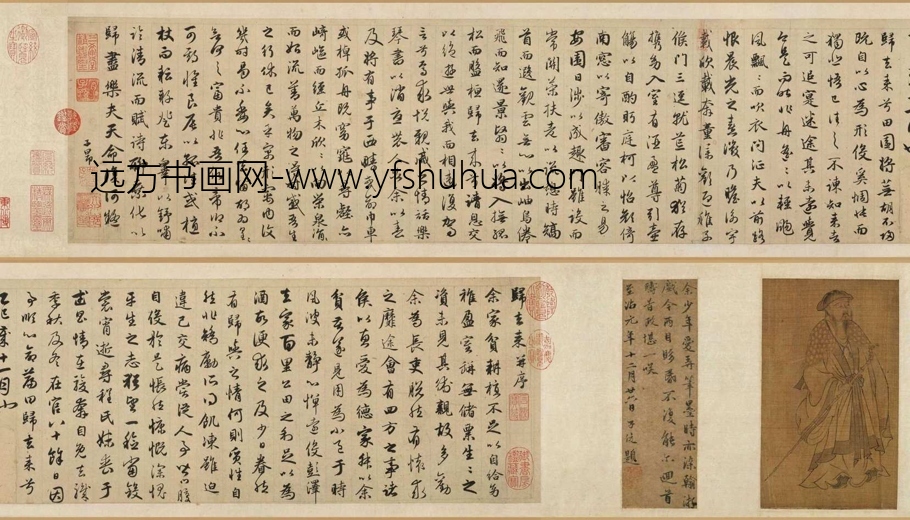 歸去來兮田園將蕪胡不歸
既自以心為形役奚惆悵而
獨悲悟已往之不諫知來者
之可追寔迷途其未遠覺
今是而昨非舟遙遙以輕颺
風飄飄而吹衣問征夫以前路
恨晨光之熹微乃瞻衡宇
載欣載奔童僕歡迎稚子
候門三逕就荒松菊猶存
攜幼入室有酒盈尊引壺
觴以自酌眄庭柯以怡顏倚
南窗以寄傲審容膝之易
安園日涉以成趣門雖設而
常關策扶老以流憩時矯
首而遐觀雲無心以出岫鳥倦
飛而知還景翳翳以將入撫孤
松而盤桓歸去來兮請息交
以絕遊世與我而相遺復駕
言兮焉求悅親戚之情話樂
琴書以消憂農人告余以春
及將有事于西疇或命巾車
或棹孤舟既窈窕以尋壑亦
崎嶇而經丘木欣欣以向榮泉涓涓
而始流羨萬物之得時感吾生
之行休已矣乎寓形宇內復
幾時曷不委心任去留胡為遑遑
欲何之富貴非吾願帝鄉不
可期懷良辰以孤往或植
杖而耘耔登東皋以舒嘯
臨清流而賦詩聊乘化以
歸盡樂夫天命復何疑
子昂
远方书画网-www.yfshuhua.com
余少年愛弄筆墨時亦染翰游
戲今兩目眵昏不復能尔回首
疇昔政堪一咲
至治元年十二月廿六日子昂題
歸去來并序
余家貧耕植不足以自給幼
稚盈室缾無儲粟生生之
資未見其術親故多勸
余為長吏脱然有懷求
之靡途會有四方之事諸
侯以惠愛為德家叔以余
貧苦遂見用為小邑于時
風波未靜心憚遠役彭澤
去家百里公田之利足以為
酒故便求之及少日眷然
有歸與之情何則質性自
然非矯勵所得飢凍雖迫
違己交病嘗從人事皆口腹
自役於是悵然慷慨深愧
平生之志猶望一稔當斂
裳宵逝尋程氏妹喪于
武昌情在駿奔自免去職
秋及冬在官八十餘日因
事順心命篇曰歸去來兮
乙巳歲十一月也